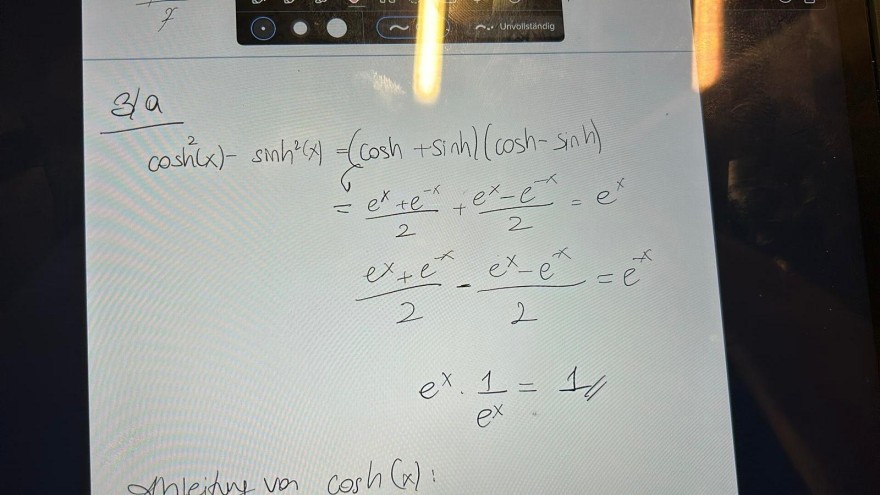 7
Unvollständig
3/a
cosh²(x) - sinh²(x) = (cosh + sinh)(cosh - sinh)
= \frac{e^x + e^{-x}}{2} + \frac{e^x - e^{-x}}{2} = e^x
\frac{e^x + e^{-x}}{2} - \frac{e^x - e^{-x}}{2} = e^{-x}
e^x · \frac{1}{e^x} = 1 //
Ableitung von cosh(x):